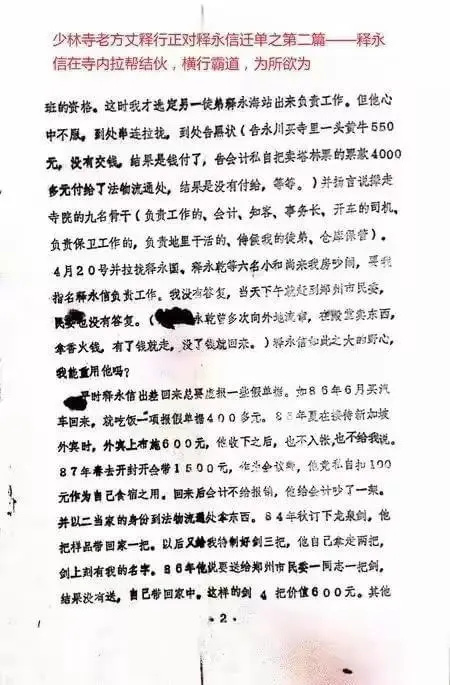 少林寺老方丈释行正对释永信迁单之第二篇——释永
信在寺内拉帮结伙，横行霸道，为所欲为
班的资格。这时我才选定另一徒弟释永海站出来负责工作。但他心
中不服，到处串连拉拢，到处告黑状（告永川买寺里一头黄牛550
元，没有交钱，结果是钱付了，告会计私自把卖塔林票的票款4000
多元付给了法物流通处，结果是没有付给，等等。）并扬言说撵走
寺院的九名骨干（负责工作的、会计、知客、事务长、开车的司机、
负责保卫工作的，负责地里干活的、侍候我的徒弟、仓库保管）。
4月20号并拉拢释永国、释永乾等六名小和尚来我房吵闹，要我
指名释永信负责工作。我没有答复，当天下午就赶到郑州市民委，
民委也没有答复。（永乾曾多次向外地流窜，在殿堂卖东西，
拿香火钱，有了钱就走，没了钱就回来。）释永信如此之大的野心，
我能重用他吗？
平时释永信出差回来总要虚报一些假单据。如86年6月买汽
车回来，就吃饭一项报假单据400多元。85年夏在接待新加坡
外宾时，外宾上布施600元，他收下之后，也不入帐，也不给我说。
87年春去开封开会带1500元，作为会议费，他竟私自扣100
元作为自己食宿之用。回来后会计不给报销，他给会计吵了一架。
并以二当家的身份到法物流通处拿东西。84年秋订下龙泉剑，他
把样品带回家一把。以后又给我特制好剑三把，他自己拿走两把，
剑上刻有我的名字。86年他说要送给郑州市民委一同志一把剑，
结果没有送，自己带回家中。这样的剑4把价值600元。其他
·2·